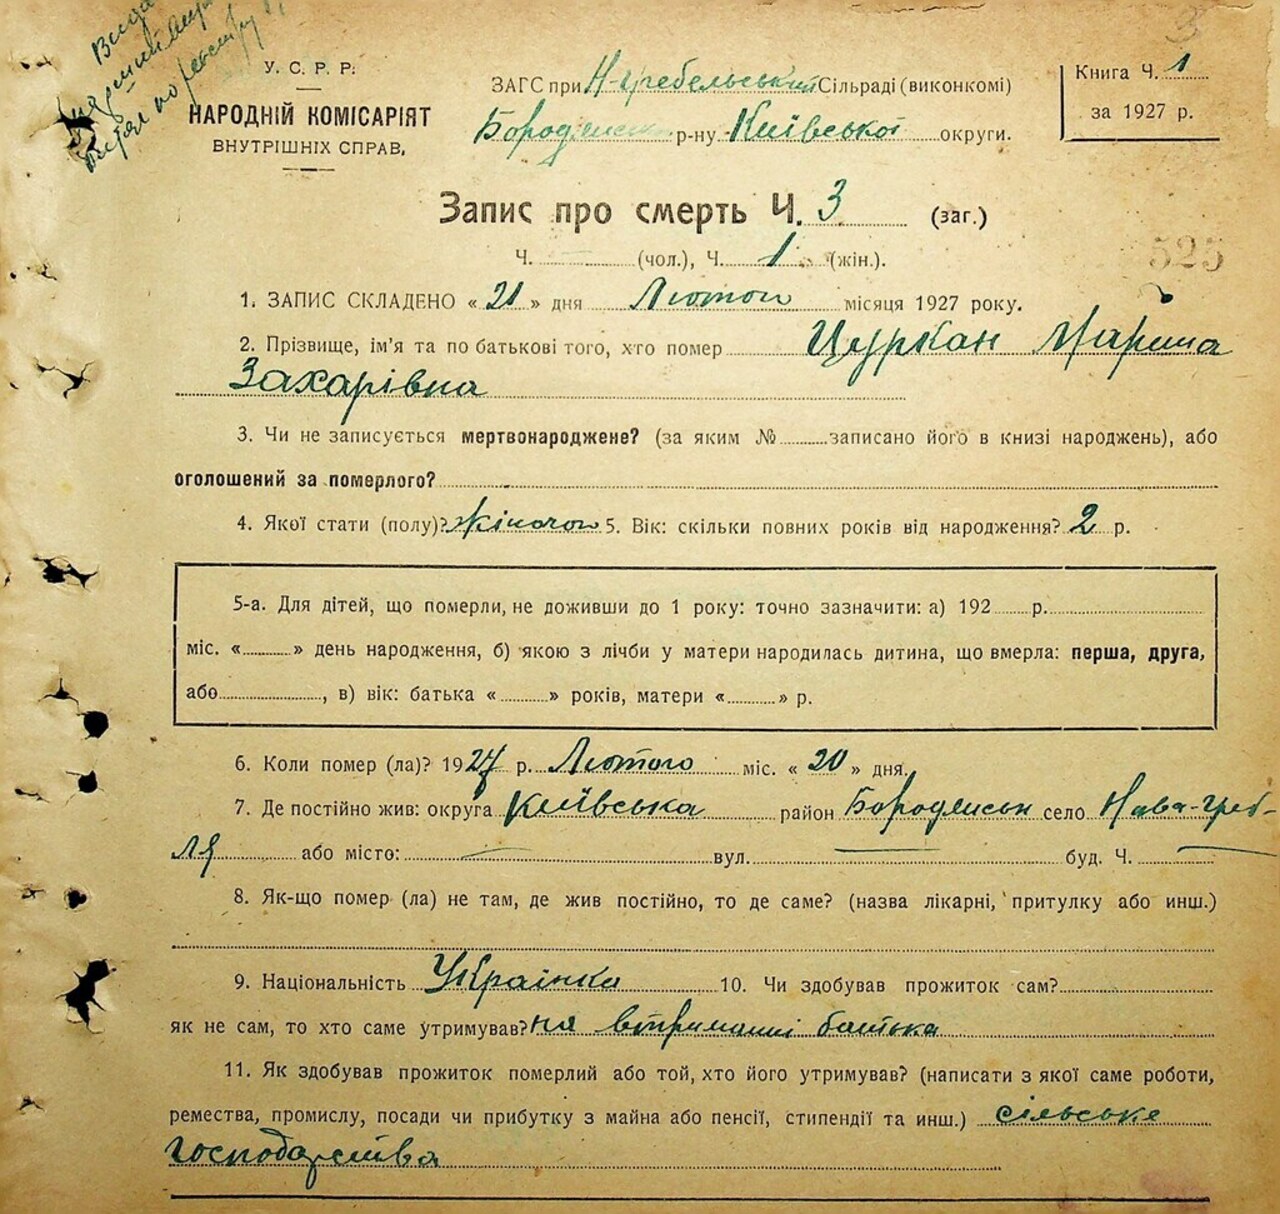 3
Вида
У. С. Р. Р.
НАРОДНІЙ КОМІСАРІЯТ
ВНУТРІШНІХ СПРАВ,
ЗАГС при Н-Гребельській Сільраді (виконкомі)
Бородянськ р-ну Київської округи.
Книга Ч. 1
за 1927 р.
Запис про смерть Ч. 3 (заг.)
Ч. — (чол.), Ч. 1 (жін.).
525
1. ЗАПИС СКЛАДЕНО « 21 » дня Лютого місяця 1927 року.
2. Прізвище, ім'я та по батькові того, хто помер Цуркан Марина
Захарівна
3. Чи не записується мертвонароджене? (за яким № записано його в книзі народжень), або
оголошений за померлого?
4. Якої стати (полу)? жіночої 5. Вік: скільки повних років від народження? 2 р.
5-а. Для дітей, що померли, не доживши до 1 року: точно зазначити: а) 192 р.
міс. « » день народження, б) якою з лічби у матери народилась дитина, що вмерла: перша, друга,
або , в) вік: батька « » років, матери « » р.
6. Коли помер (ла)? 1927 р. Лютого міс. « 20 » дня.
7. Де постійно жив: округа Київська район Бородянськ село Нова-Греб-
ля або місто: — вул. — буд. Ч. —
8. Як-що помер (ла) не там, де жив постійно, то де саме? (назва лікарні, притулку або инш.)
9. Національність Українка 10. Чи здобував прожиток сам?
як не сам, то хто саме утримував? на втриманні батька
11. Як здобував прожиток померлий або той, хто його утримував? (написати з якої саме роботи,
ремества, промислу, посади чи прибутку з майна або пенсії, стипендії та инш.) сільське
господарства